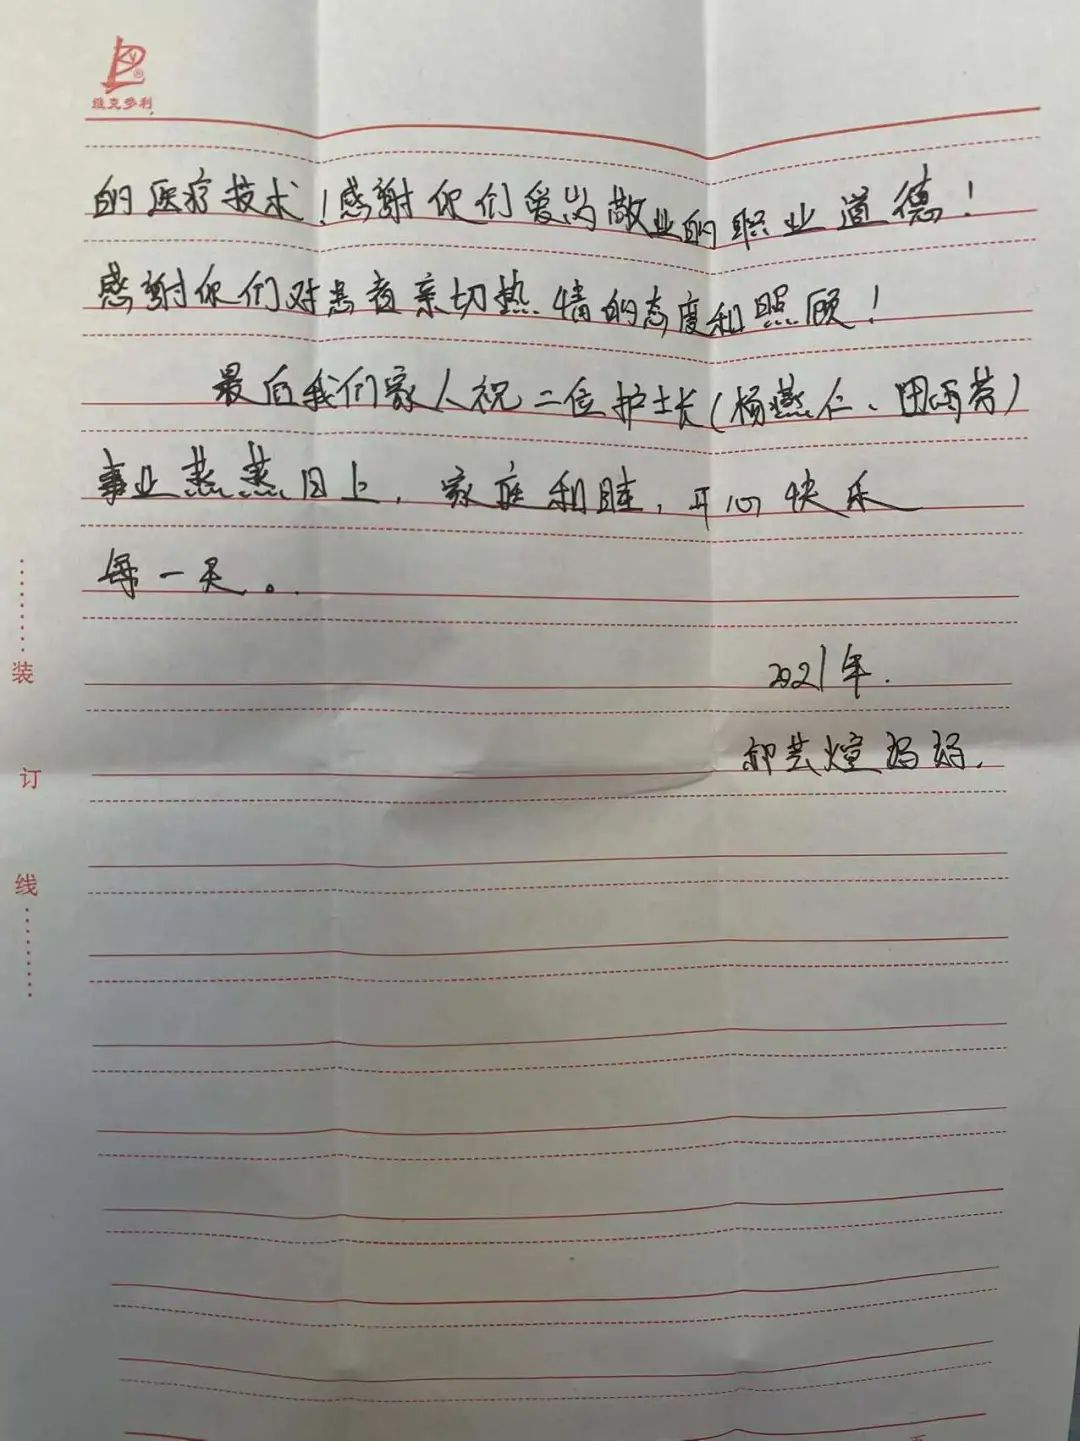 维克多利
的医疗技术！感谢你们爱岗敬业的职业道德！
感谢你们对患者亲切热情的态度和照顾！
最后我们家人祝二位护士长（杨燕仁、田雨芳）
事业蒸蒸日上，家庭和睦，开心快乐
每一天。
2021年.
郝芸煊妈妈.
装
订
线